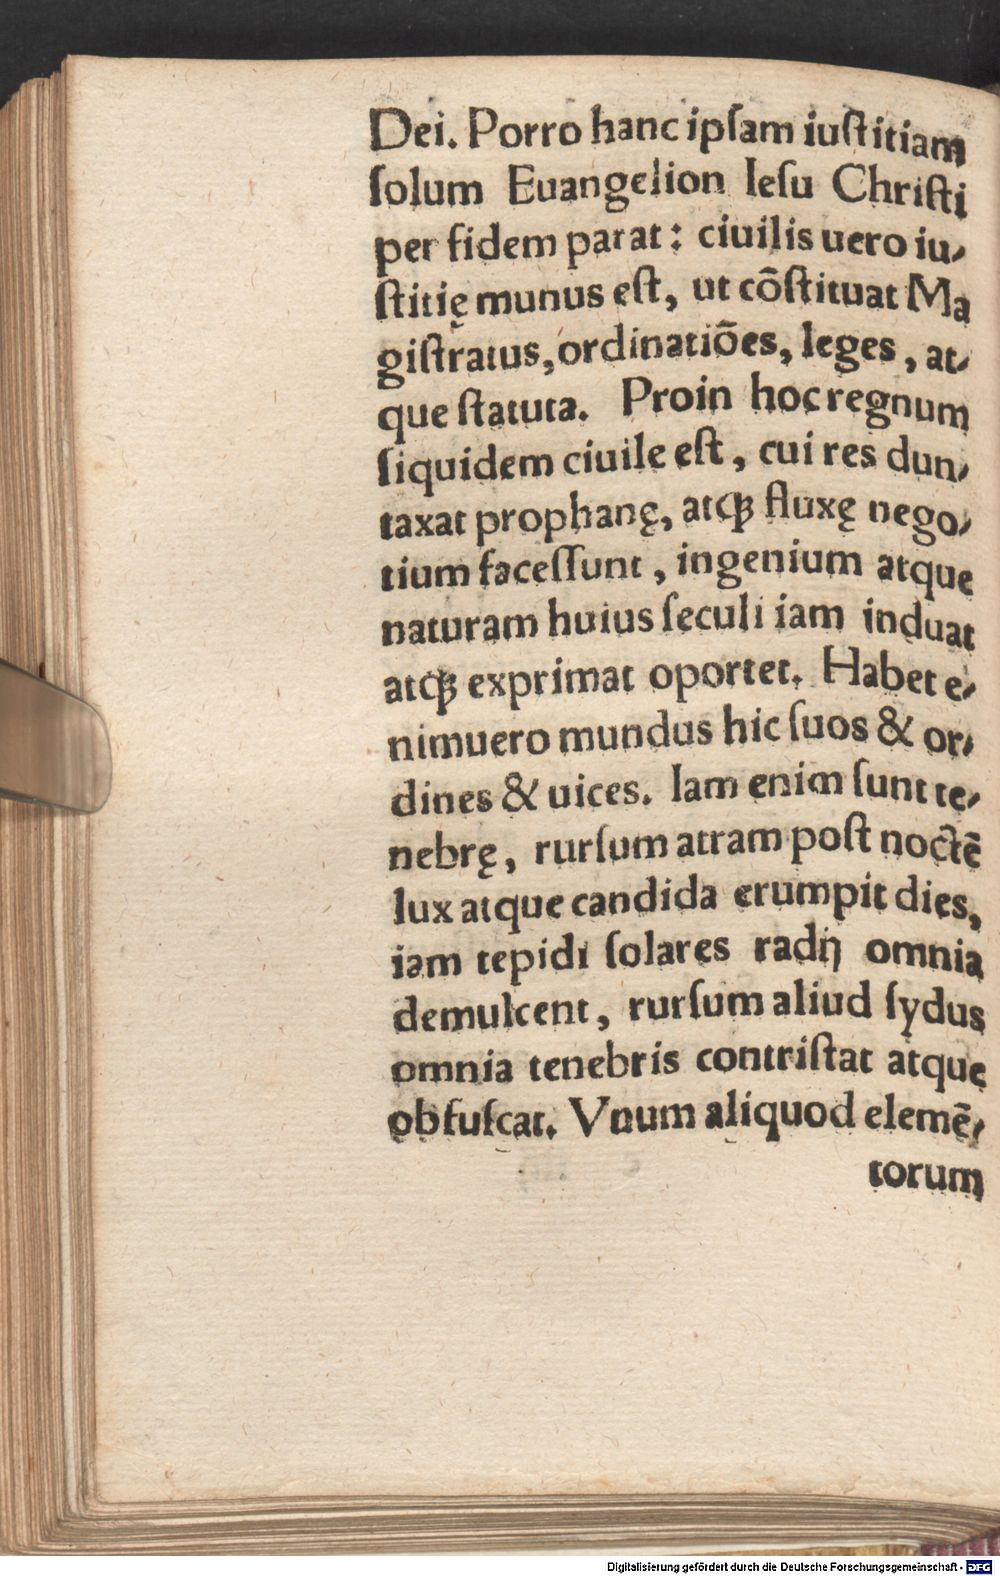 Dei. Porro hanc ipſam iuſtitiam
ſolum Euangelion Ieſu Chriſti
per fidem parat : ciuilis uero iu⸗
ſtitię munus eſt, ut cõſtituat Ma
giſtratus, ordinatiões, leges, at⸗
que ſtatuta. Proin hoc regnum
ſiquidem ciuile eſt, cui res dun⸗
taxat prophanę, atqꝫ fluxę nego⸗
tium faceſſunt, ingenium atque
naturam huius ſeculi iam induat
atqꝫ exprimat oportet. Habet e⸗
nimuero mundus hic ſuos & or⸗
dines & uices. Iam enim ſunt te⸗
nebrę, rurſum atram poſt noctẽ
lux atque candida erumpit dies,
iam tepidi ſolares radij omnia
demulcent, rurſum aliud ſydus
omnia tenebris contriſtat atque
obfuſcat. Vnum aliquod elemẽ⸗
torum
Digitalisierung gefördert durch die Deutsche Forschungsgemeinschaft - DFG